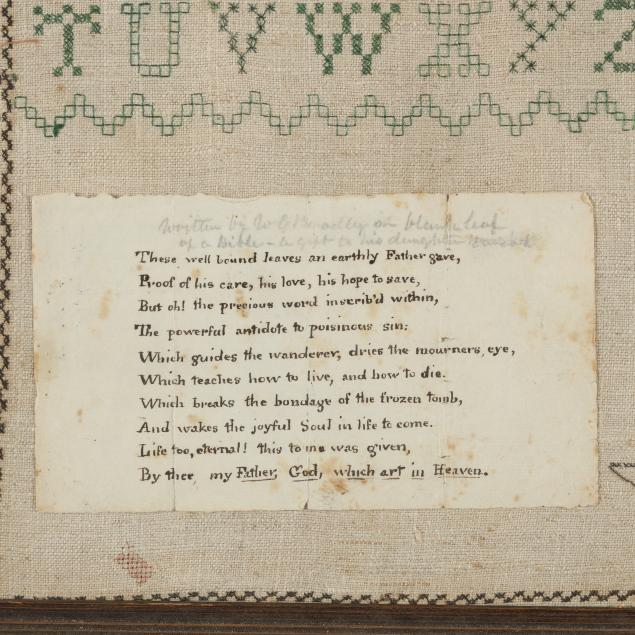 T U V W X Y Z
Written by W C Bradley on blank leaf
of a Bible - a gift to his daughter
These well bound leaves an earthly Father gave,
Proof of his care, his love, his hope to save,
But oh! the precious word inscrib'd within,
The powerful antidote to poisinous sin:
Which guides the wanderer, dries the mourners, eye,
Which teaches how to live, and how to die.
Which breaks the bondage of the frozen tomb,
And wakes the joyful Soul in life to come.
Life too, eternal! this to me was given,
By thee, my Father, God, which art in Heaven.